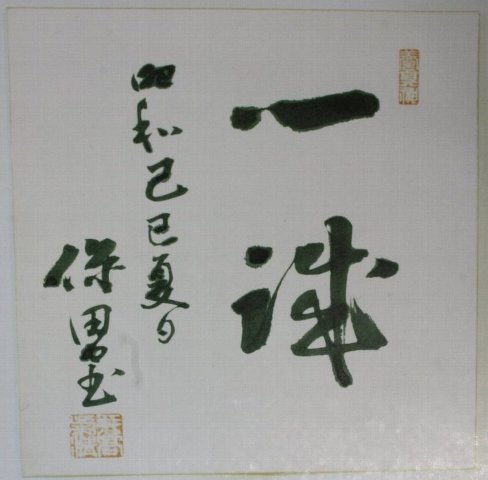 一誠
昭和己巳夏日
保男書